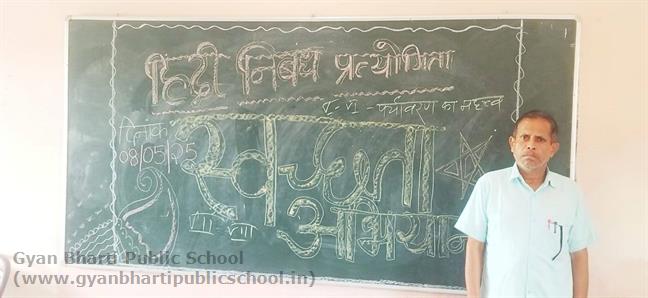 हिंदी निबंध प्रत्योगिता
V-VI - पर्यावरण का महत्त्व
दिनांक
08/05/25
स्वच्छता
अभियान
Gyan Bharti Public School
(www.gyanbhartipublicschool.in)